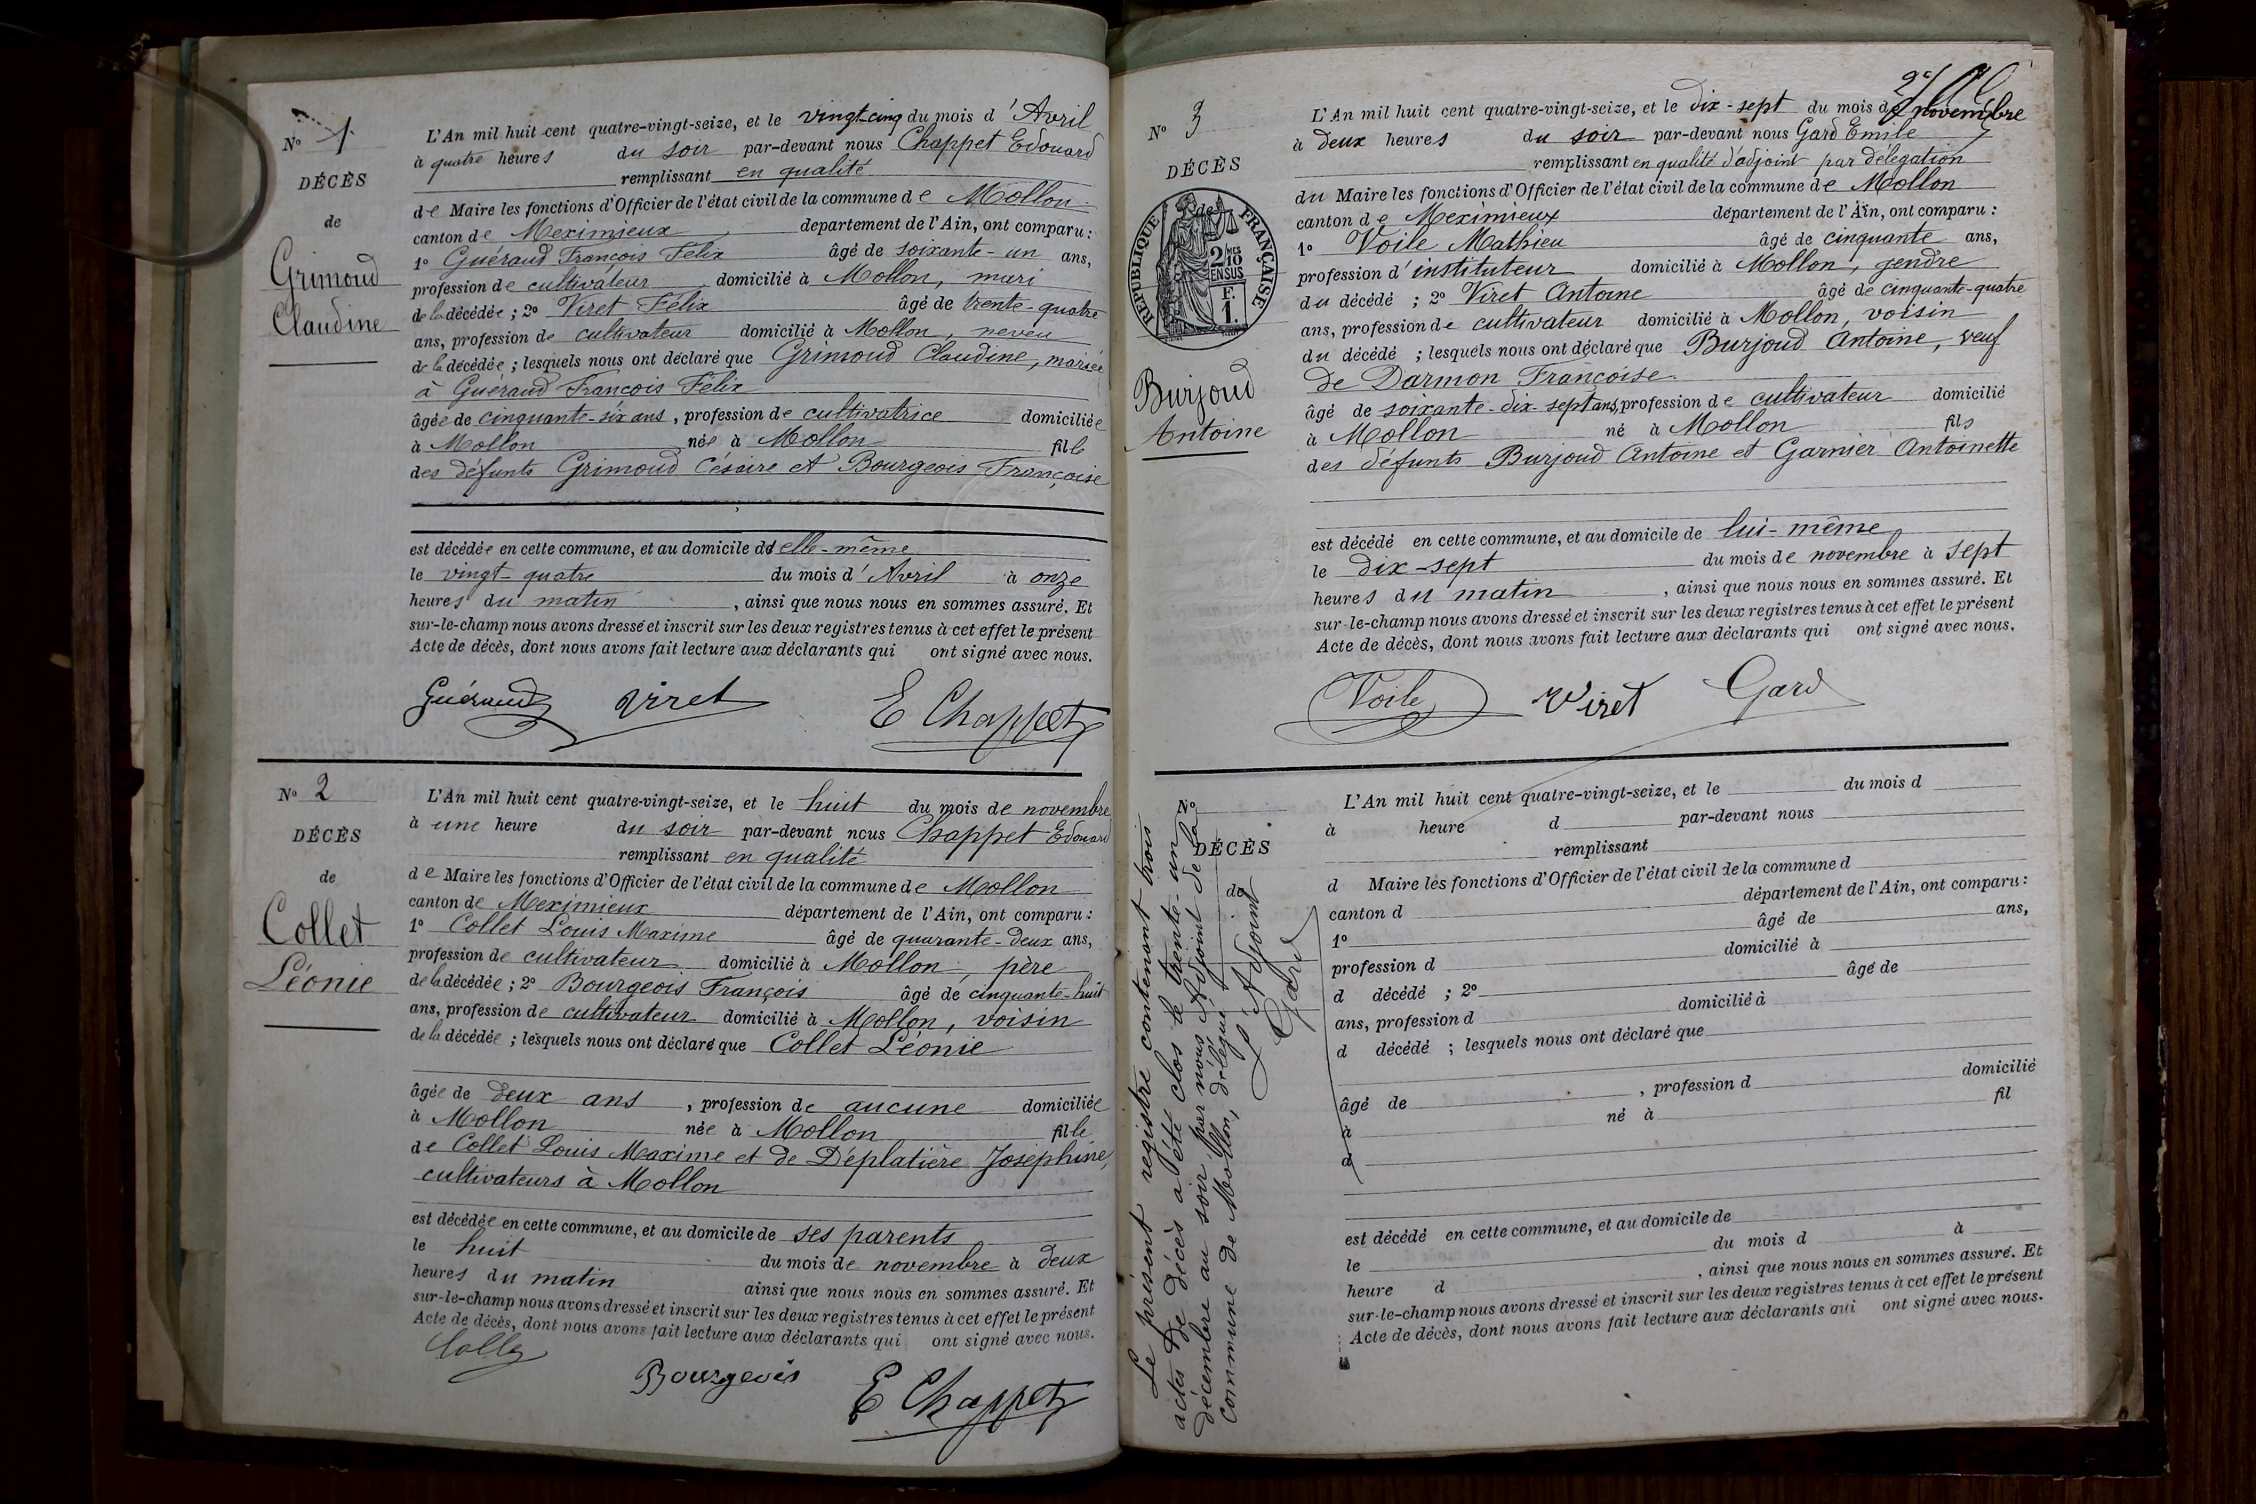 N° 1
DÉCÈS
de
Grimoud
Claudine
L'An mil huit cent quatre-vingt-seize, et le vingt-cinq du mois d'Avril
à quatre heures du soir par-devant nous Chappet Edouard
remplissant en qualité
de Maire les fonctions d'Officier de l'état civil de la commune de Mollon
canton de Meximieux département de l'Ain, ont comparu :
1° Guéraud François Félix âgé de soixante-un ans,
profession de cultivateur domicilié à Mollon, mari
de la décédée ; 2° Viret Félix âgé de trente-quatre
ans, profession de cultivateur domicilié à Mollon, neveu
de la décédée ; lesquels nous ont déclaré que Grimoud Claudine, mariée
à Guéraud François Félix
âgée de cinquante-six ans, profession de cultivatrice domiciliée
à Mollon née à Mollon fille
des défunts Grimoud Césaire et Bourgeois Françoise
est décédée en cette commune, et au domicile d'elle-même
le vingt-quatre du mois d'Avril à onze
heures du matin, ainsi que nous nous en sommes assuré. Et
sur-le-champ nous avons dressé et inscrit sur les deux registres tenus à cet effet le présent
Acte de décès, dont nous avons fait lecture aux déclarants qui ont signé avec nous.
Guéraud Viret E Chappet
N° 2
DÉCÈS
de
Collet
Léonie
L'An mil huit cent quatre-vingt-seize, et le huit du mois de novembre
à une heure du soir par-devant nous Chappet Edouard
remplissant en qualité
de Maire les fonctions d'Officier de l'état civil de la commune de Mollon
canton de Meximieux département de l'Ain, ont comparu :
1° Collet Louis Maxime âgé de quarante-deux ans,
profession de cultivateur domicilié à Mollon, père
de la décédée ; 2° Bourgeois François âgé de cinquante-huit
ans, profession de cultivateur domicilié à Mollon, voisin
de la décédée ; lesquels nous ont déclaré que Collet Léonie
âgée de deux ans, profession de aucune domiciliée
à Mollon née à Mollon fille
de Collet Louis Maxime et de Déplatière Joséphine,
cultivateurs à Mollon
est décédée en cette commune, et au domicile de ses parents
le huit du mois de novembre à deux
heures du matin ainsi que nous nous en sommes assuré. Et
sur-le-champ nous avons dressé et inscrit sur les deux registres tenus à cet effet le présent
Acte de décès, dont nous avons fait lecture aux déclarants qui ont signé avec nous.
Bourgeois E Chappet
N° 3
DÉCÈS
de
RÉPUBLIQUE FRANÇAISE
2/10 EN SUS
F. 1.
Burjoud
Antoine
L'An mil huit cent quatre-vingt-seize, et le dix-sept du mois de novembre
à deux heures du soir par-devant nous Gard Emile
remplissant en qualité d'adjoint par délégation
du Maire les fonctions d'Officier de l'état civil de la commune de Mollon
canton de Meximieux département de l'Ain, ont comparu :
1° Voile Mathieu âgé de cinquante ans,
profession d'instituteur domicilié à Mollon, gendre
du décédé ; 2° Viret Antoine âgé de cinquante-quatre
ans, profession de cultivateur domicilié à Mollon, voisin
du décédé ; lesquels nous ont déclaré que Burjoud Antoine, veuf
de Darmon Françoise
âgé de soixante-dix-sept ans, profession de cultivateur domicilié
à Mollon né à Mollon fils
des défunts Burjoud Antoine et Garnier Antoinette
est décédé en cette commune, et au domicile de lui-même
le dix-sept du mois de novembre à sept
heures du matin, ainsi que nous nous en sommes assuré. Et
sur-le-champ nous avons dressé et inscrit sur les deux registres tenus à cet effet le présent
Acte de décès, dont nous avons fait lecture aux déclarants qui ont signé avec nous.
Voile Viret Gard
N°
DÉCÈS
de
Le présent registre contenant trois
actes de décès a été clos le trente-un
décembre au soir par nous Adjoint de la
Commune de Mollon, délégué
L'Adjoint
Gard
L'An mil huit cent quatre-vingt-seize, et le du mois d
à heure d par-devant nous
remplissant
d Maire les fonctions d'Officier de l'état civil de la commune d
canton d département de l'Ain, ont comparu :
1° âgé de ans,
profession d domicilié à
d décédé ; 2° âgé de
ans, profession d domicilié à
d décédé ; lesquels nous ont déclaré que
âgé de , profession d domicilié
à né à fil
d
est décédé en cette commune, et au domicile de
le du mois d à
heure d , ainsi que nous nous en sommes assuré. Et
sur-le-champ nous avons dressé et inscrit sur les deux registres tenus à cet effet le présent
Acte de décès, dont nous avons fait lecture aux déclarants qui ont signé avec nous.